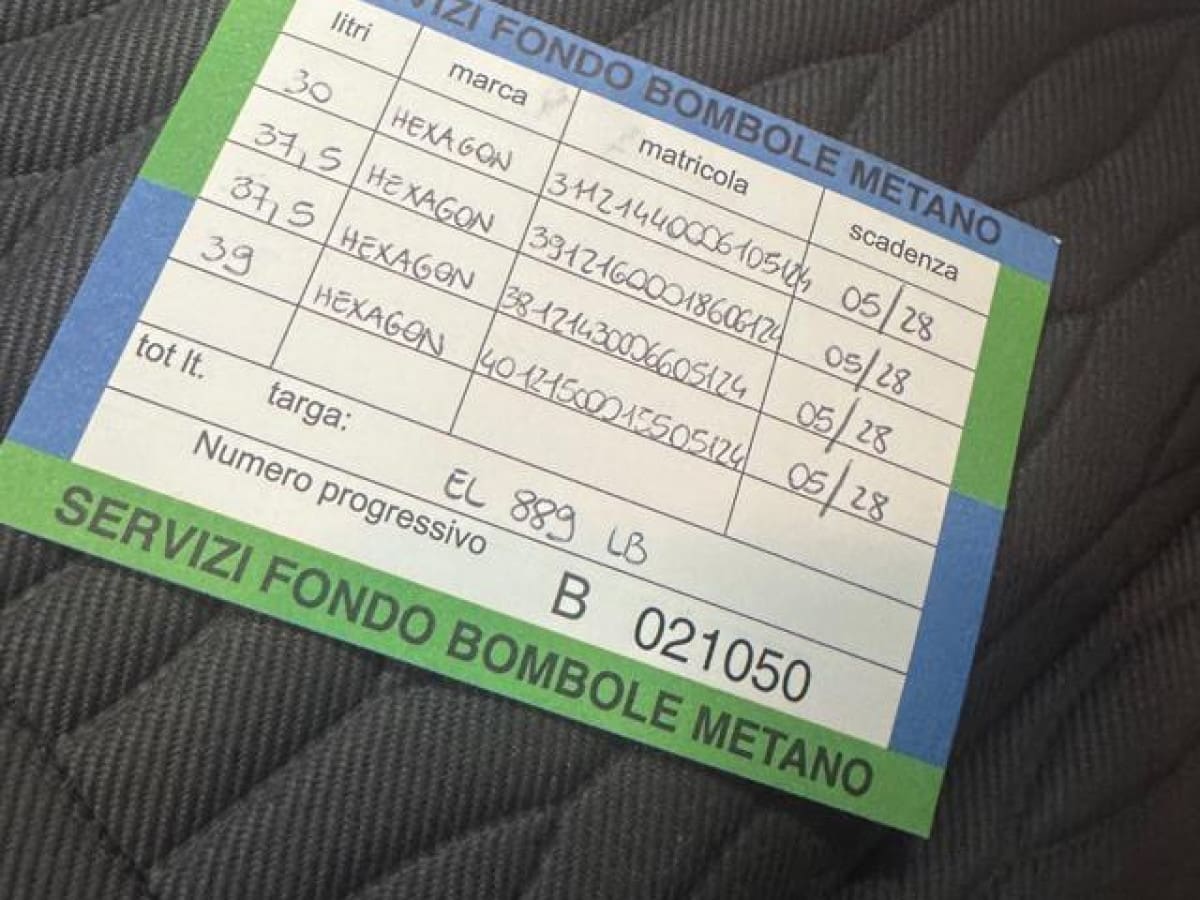 SERVIZI FONDO BOMBOLE METANO
litri marca matricola scadenza
30 HEXAGON 31121440006105124 05/28
37,5 HEXAGON 39121600018606124 05/28
37,5 HEXAGON 38121430006605124 05/28
39 HEXAGON 40121500015505124 05/28
tot lt.
targa: EL 889 LB
Numero progressivo B 021050
SERVIZI FONDO BOMBOLE METANO